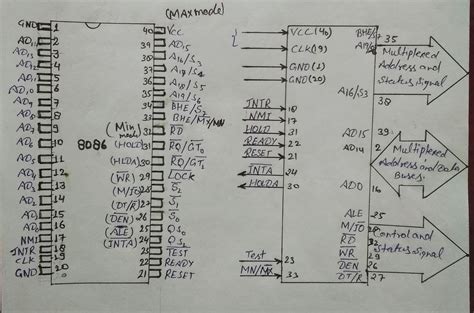 (MAX mode)
GND 1
AD14 2
AD13 3
AD12 4
AD11 5
AD10 6
AD9 7
AD8 8
AD7 9
AD6 10
AD5 11
AD4 12
AD3 13
AD2 14
AD1 15
AD0 16
NMI 17
INTR 18
CLK 19
GND 20
8086
(Min mode)
40 VCC
39 AD15
38 A16/S3
37 A17/S4
36 A18/S5
35 A19/S6
34 BHE/S7
33 MN/MX
32 RD
(HOLD) 31 RQ/GT0
(HLDA) 30 RQ/GT1
(WR) 29 LOCK
(M/IO) 28 S2
(DT/R) 27 S1
(DEN) 26 S0
(ALE) 25 QS0
(INTA) 24 QS1
23 Test
22 READY
21 RESET
VCC (40)
CLK (19)
GND (1)
GND (20)
INTR 18
NMI 17
HOLD 31
READY 22
RESET 21
INTA 24
HOLDA 30
Test 23
MN/MX 33
BHE/S7
35
A16/S3
38
Multiplexed
Address and
Status signal
AD15 39
AD14 2
AD0 16
Multiplexed
Address and Data
Buses
ALE 25
M/IO 28
RD 32
WR 29
DEN 26
DT/R 27
Control and
Status signal